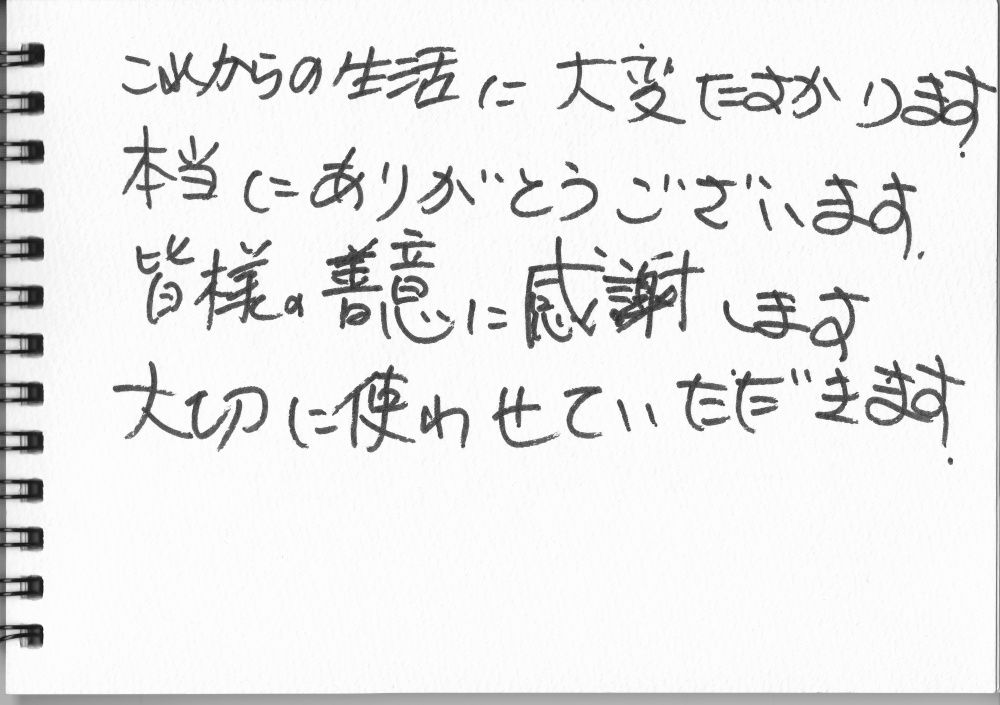 これからの生活に大変たすかります.
本当にありがとうございます.
皆様の善意に感謝します
大切に使わせていただきます.